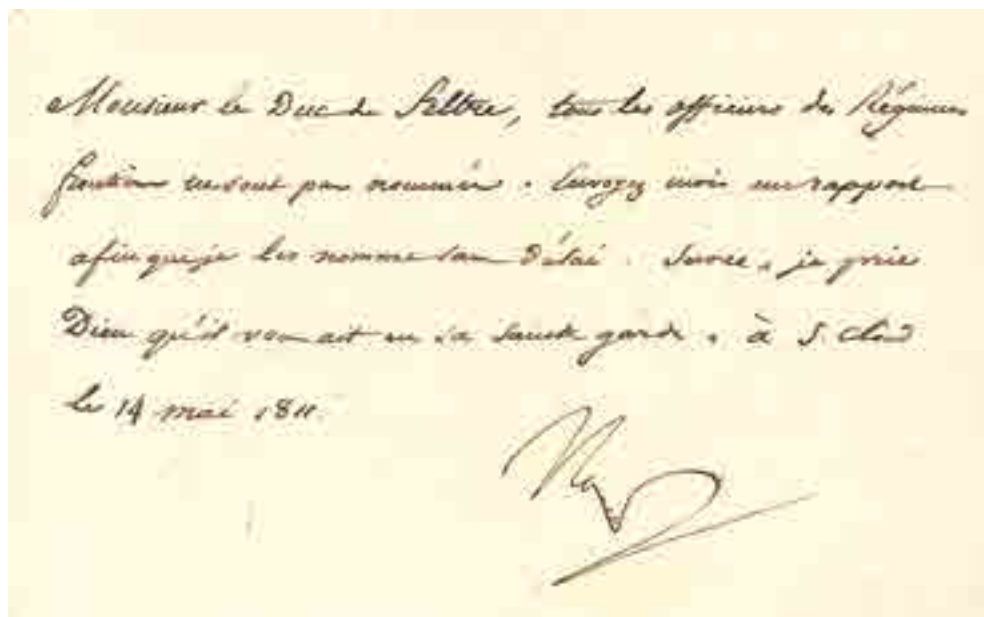 Monsieur le Duc de Feltre, tous les officiers des Régimens
frontières ne sont pas nommés. Envoyez moi un rapport
afin que je les nomme sans délai. Sur ce, je prie
Dieu qu'il vous ait en sa sainte garde. à S. Cloud
le 14 mai 1811.
Nap